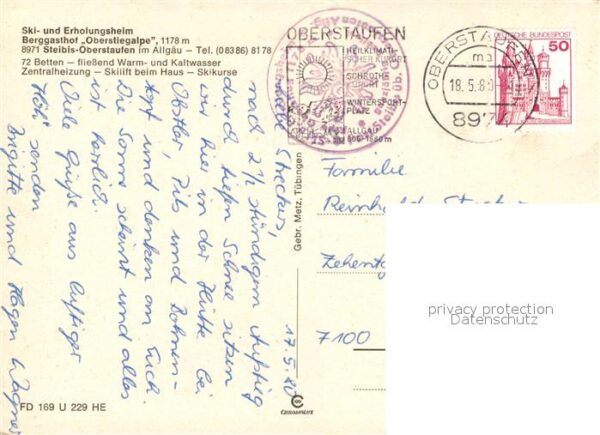 Ski- und Erholungsheim
Berggasthof „Oberstiegalpe", 1178 m
8971 Steibis-Oberstaufen im Allgäu – Tel. (0 83 86) 81 78
72 Betten – fließend Warm- und Kaltwasser
Zentralheizung – Skilift beim Haus – Skikurse
OBERSTAUFEN
HEILKLIMATI-
SCHER KURORT
SCHROTH-
KURORT
WINTERSPORT-
PLATZ
ALLGÄU
800-1880 m
OBERSTAUFEN
18.5.80
897
DEUTSCHE BUNDESPOST
50
17.5.80
nach 2 1/2 stündigem Aufstieg
durch tiefen Schnee sitzen
wir hier in der Hütte bei
Obstler, Pils und
und denken an Euch.
Die Sonne scheint und alles
ist herrlich.
Viele Grüße aus luftiger
Höh' senden
Brigitte und Hagen Wagner
Gebr. Metz, Tübingen
Familie
Reinhold
7100
privacy protection
Datenschutz
FD 169 U 229 HE